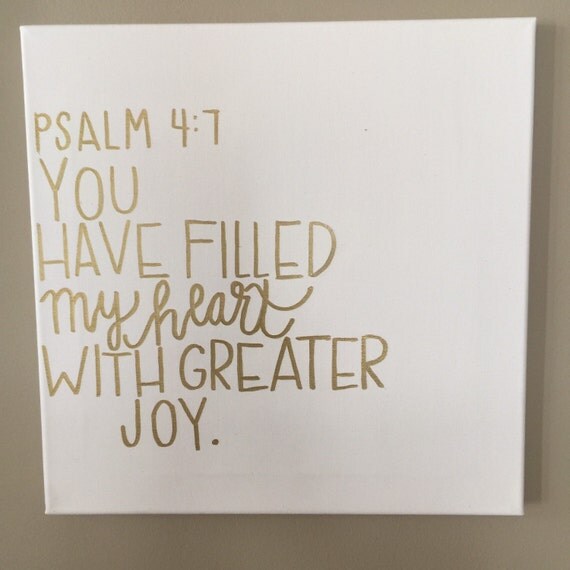 PSALM 4:7
YOU
HAVE FILLED
my heart
WITH GREATER
JOY.